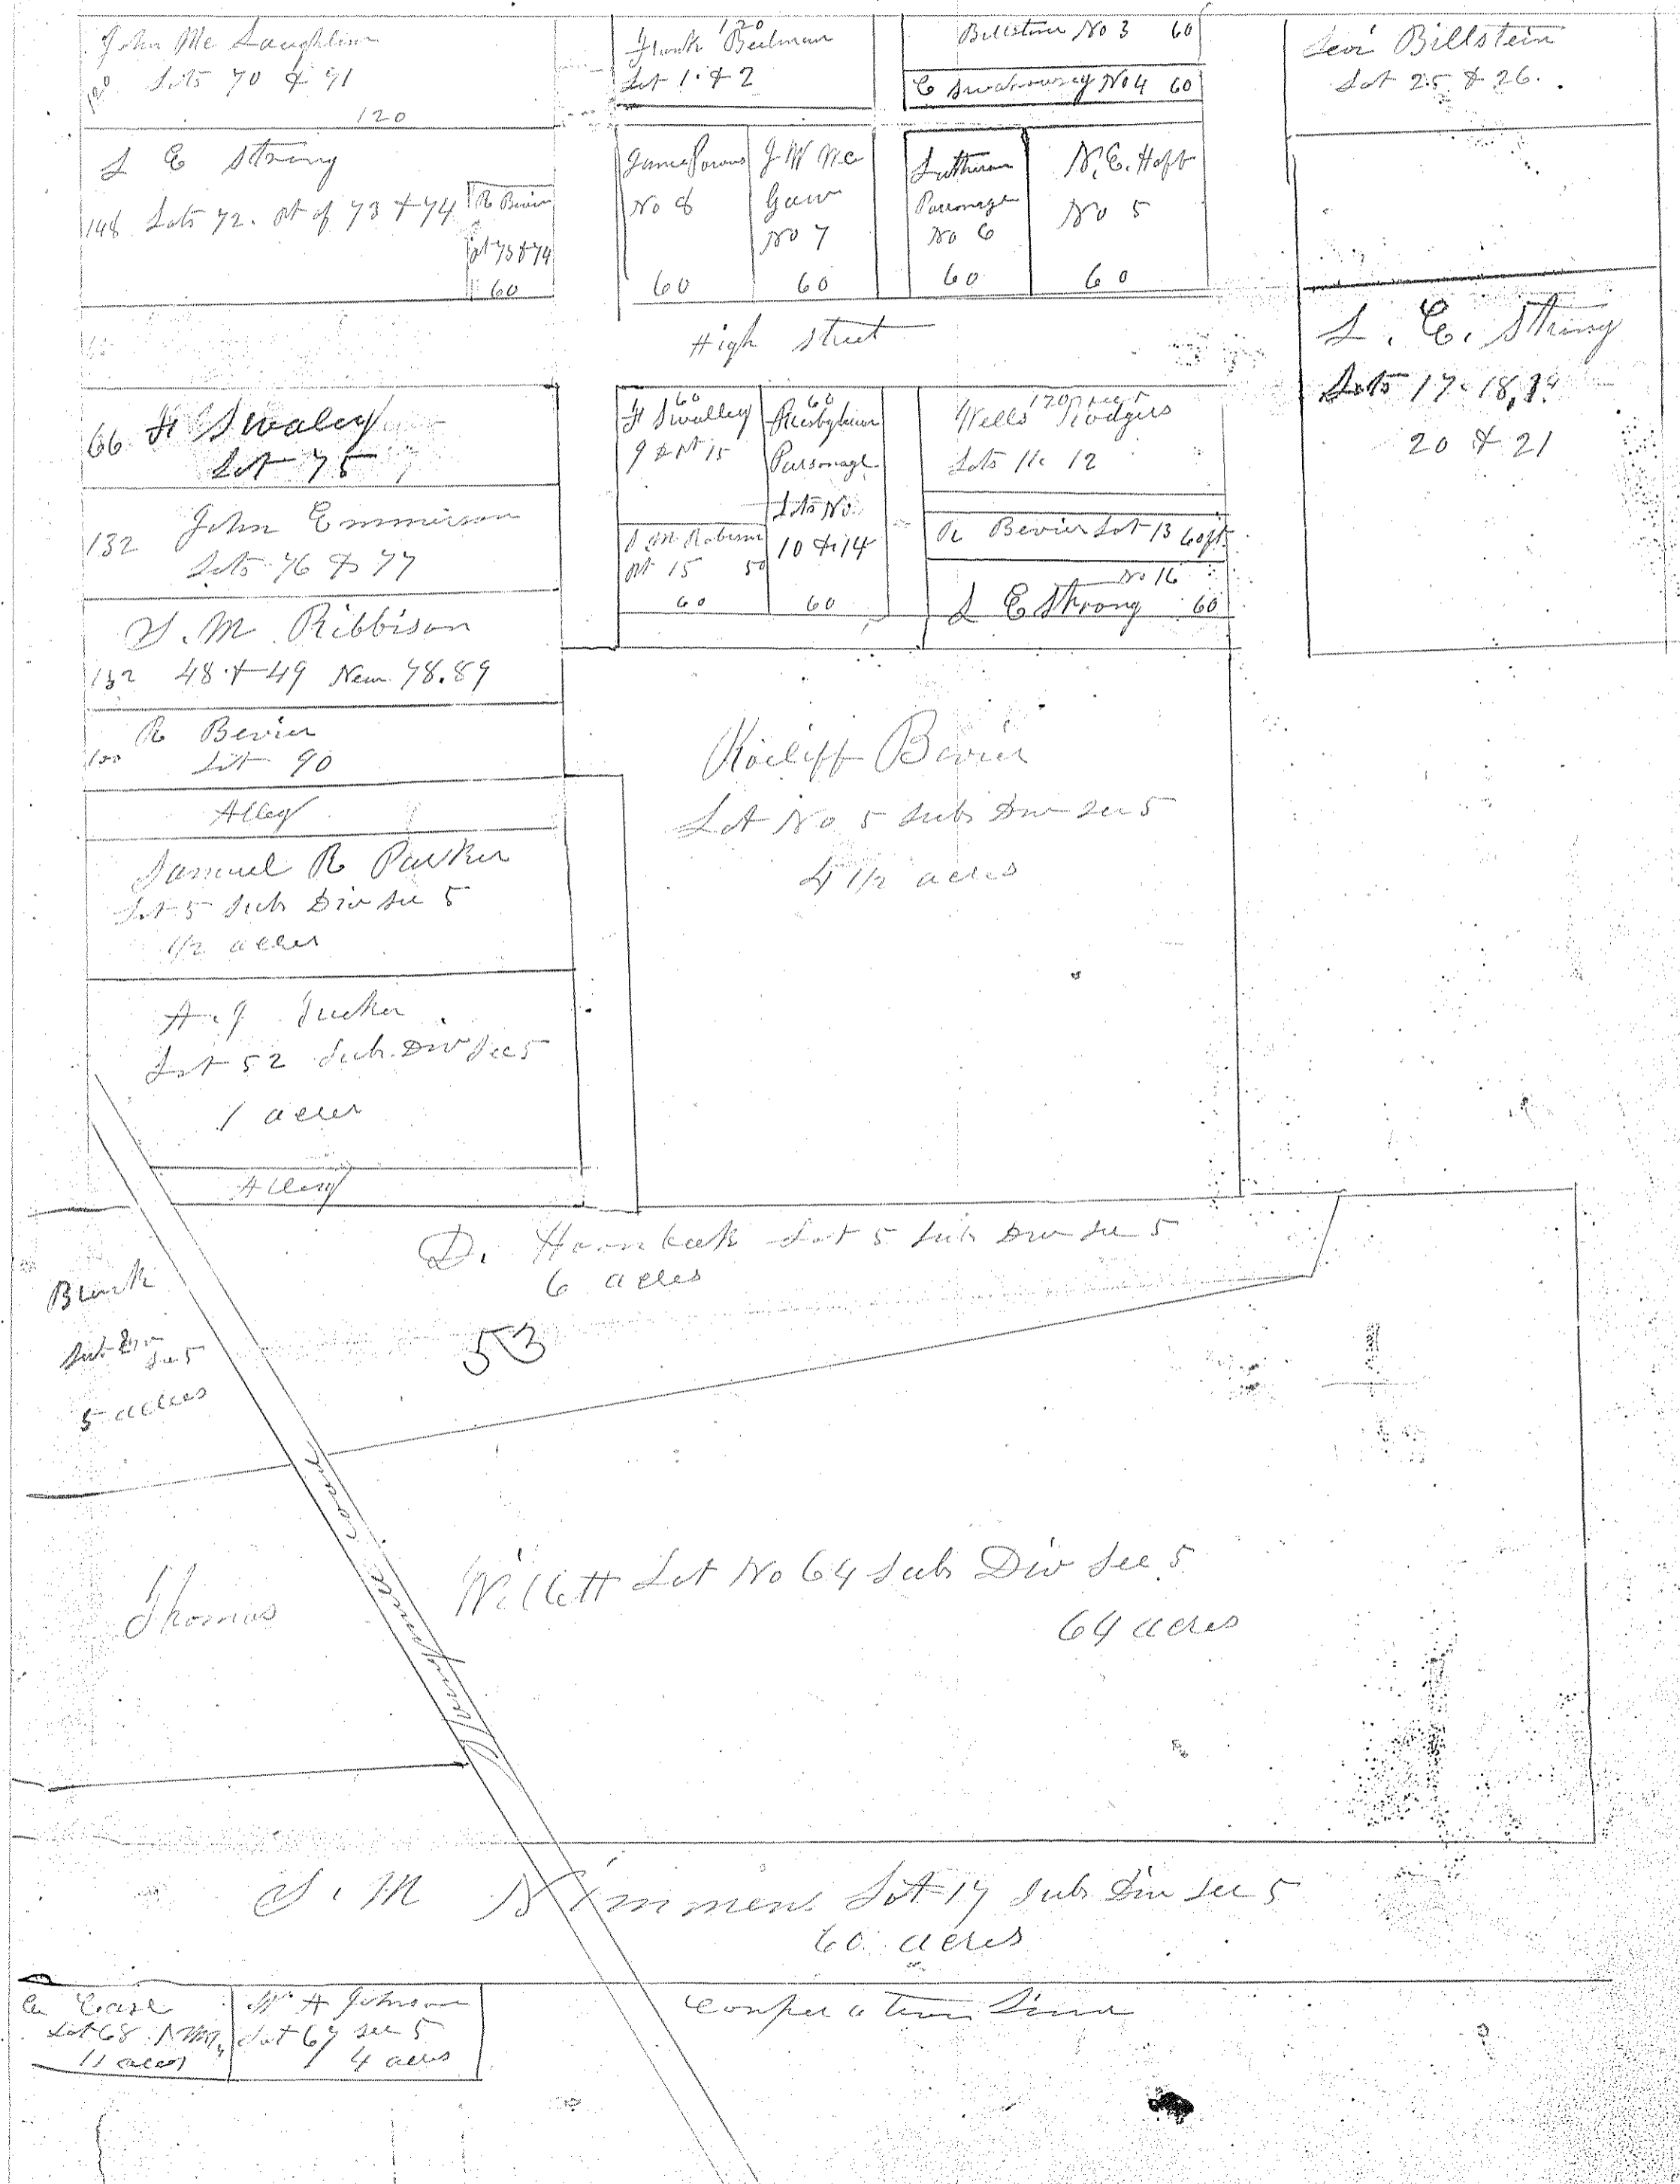 John Mc Laughlin
Lots 70 & 91
120
120
L E String
148 Lots 72. pt of 73 & 74
R Bevier
pt 73 & 74
60
120
Frank Beelman
Lot 1 & 2
Billstine No 3 60
C No 4 60
Levi Billstein
Lot 25 & 26.
James
No 8
60
J W Mc
Gaw
No 7
60
Lutheran
Parsonage
No 6
60
N. E. Hoft
No 5
60
High Street
L. E. String
Lots 17. 18, 19
20 & 21
66 H Swaley
Lot 75
132 John Emmerson
Lots 76 & 77
S. M Ribbison
132 48 & 49 New 78.89
R Bevier
100 Lot 90
Alley
Samuel R Parker
Lot 5 Sub Div Sec 5
1/2 acres
A. J Tucker
Lot 52 Sub. Div Sec 5
1 acres
Alley
60
H Swalley
9 & pt 15
S M Robison
pt 15 50
60
60
Presbyterian
Parsonage
Lots No.
10 & 14
60
120 feet
Wells Rodgers
Lots 11. 12
R Bevier Lot 13 60 ft.
No 16
L E Strong 60
Roeliff Bevier
Lot No 5 Sub Div Sec 5
4 1/2 acres
D. Hornbeek Lot 5 Sub Div Sec 5
6 acres
53
Sub Div
Sec 5
5 acres
Plymouth road
Thomas Willett Lot No 64 Sub Div Sec 5
64 acres
S. M Nimmens Lot 17 Sub Div Sec 5
60 acres
Case
Lot 68
11 acres
W A Johnson
Lot 67 Sec 5
4 acres
Corperation Line